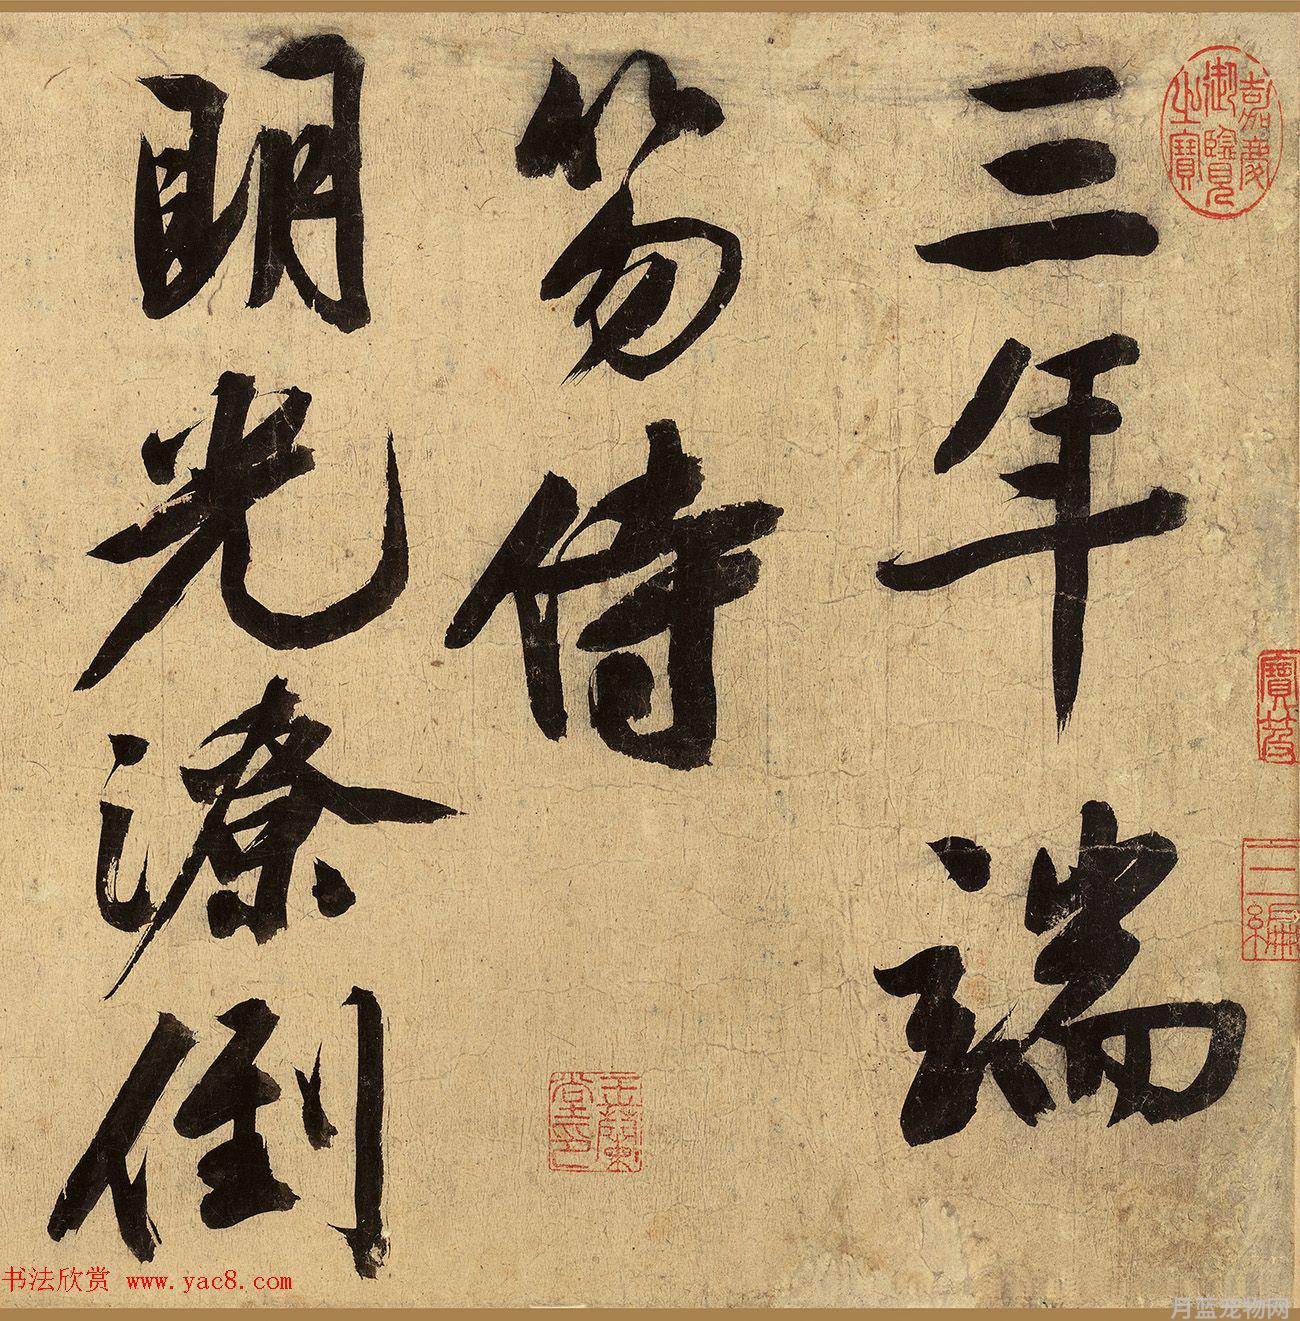 三年端
笏侍
明光潦倒
嘉慶
御覽
之寶
寶笈
三編
書法欣赏 www.yac8.com
月蓝宠物网